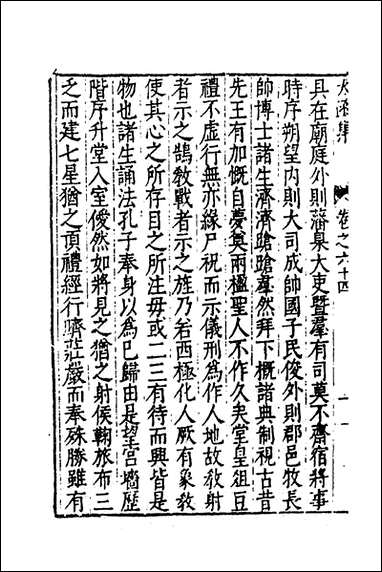 太函集 卷之六十四
具在廟庭外則藩臬大吏曁羣有司莫不齋宿將事
時序朔望内則大司成帥國子民俊外則郡邑牧長
帥博士諸生濟濟蹌蹌羣然拜下槪諸典制視古昔
先王有加慨自夢奠兩楹聖人不作久矣堂皇俎豆
禮不虚行無亦緣尸祝而示儀刑爲作人地故敎射
者示之鵠敎戰者示之旌乃若西極化人厥有象敎
使其心之所存目之所注毋或二三有待而興皆是
物也諸生誦法孔子奉身以爲已歸由是望宫墻歷
階序升堂入室僾然如將見之猶之射侯鞠旅布三
乏而建七星猶之頂禮經行嚌莊嚴而奉殊勝雖有